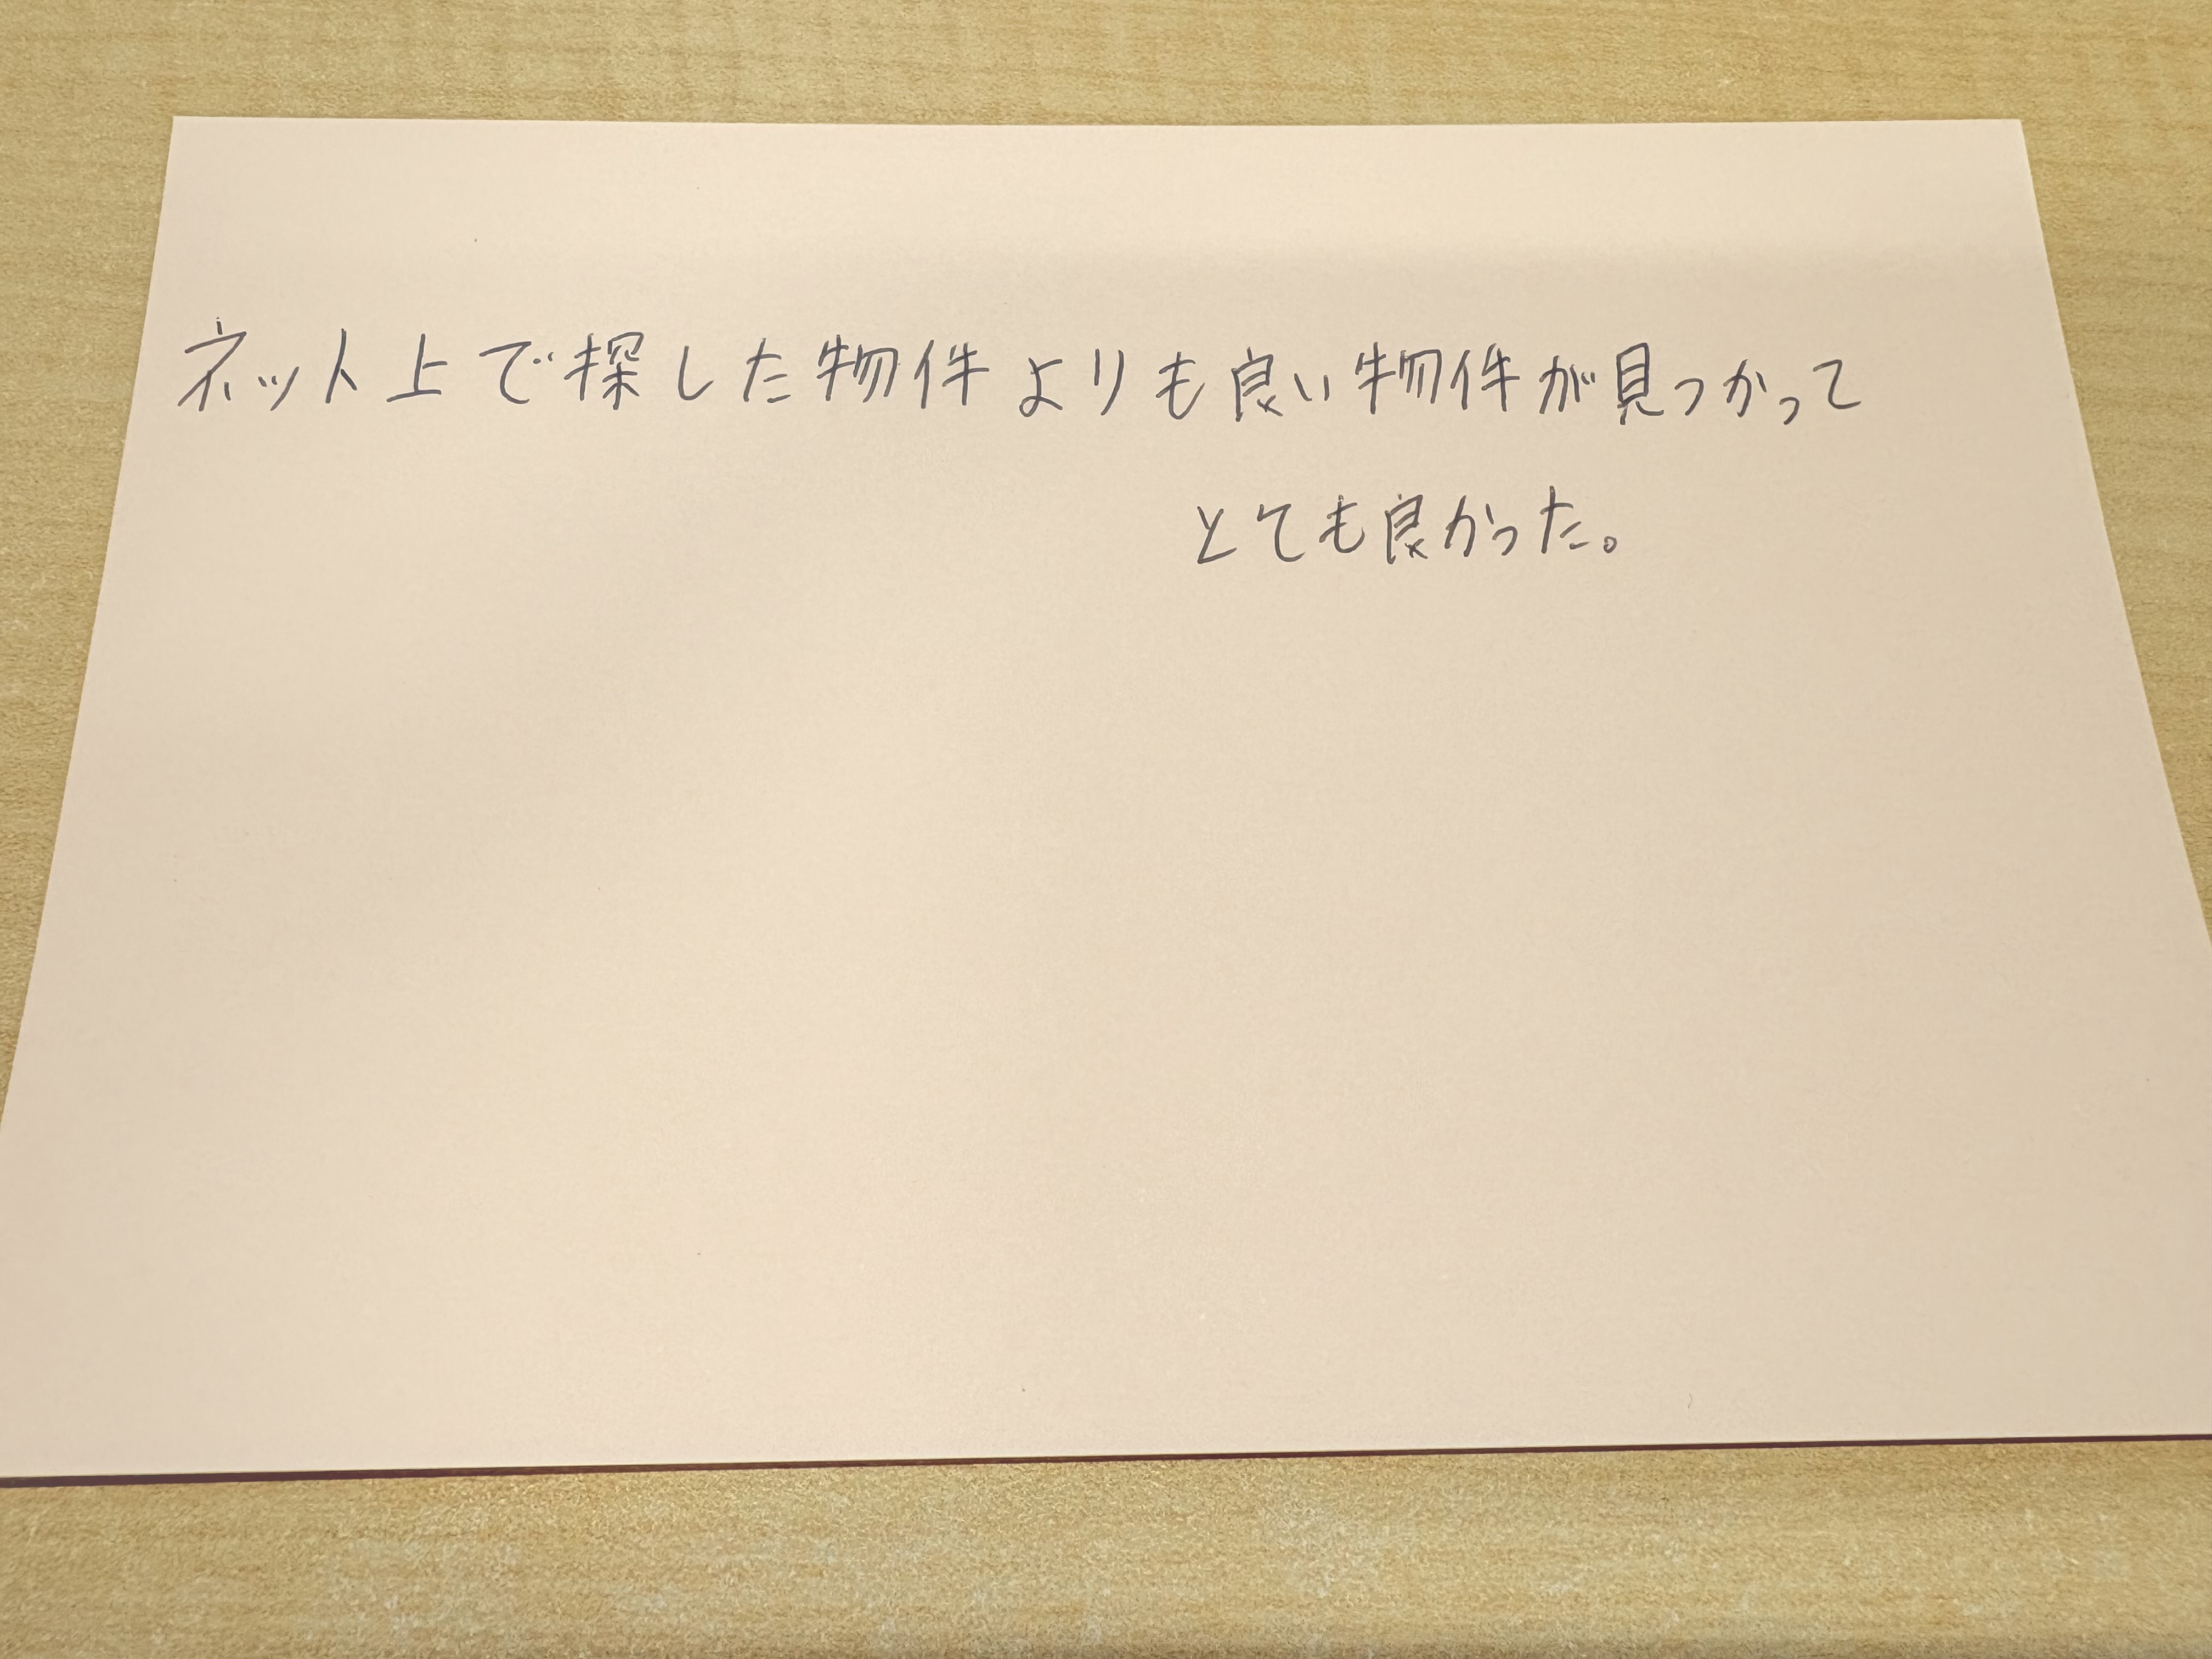 ネット上で探した物件よりも良い物件が見つかって
とても良かった。